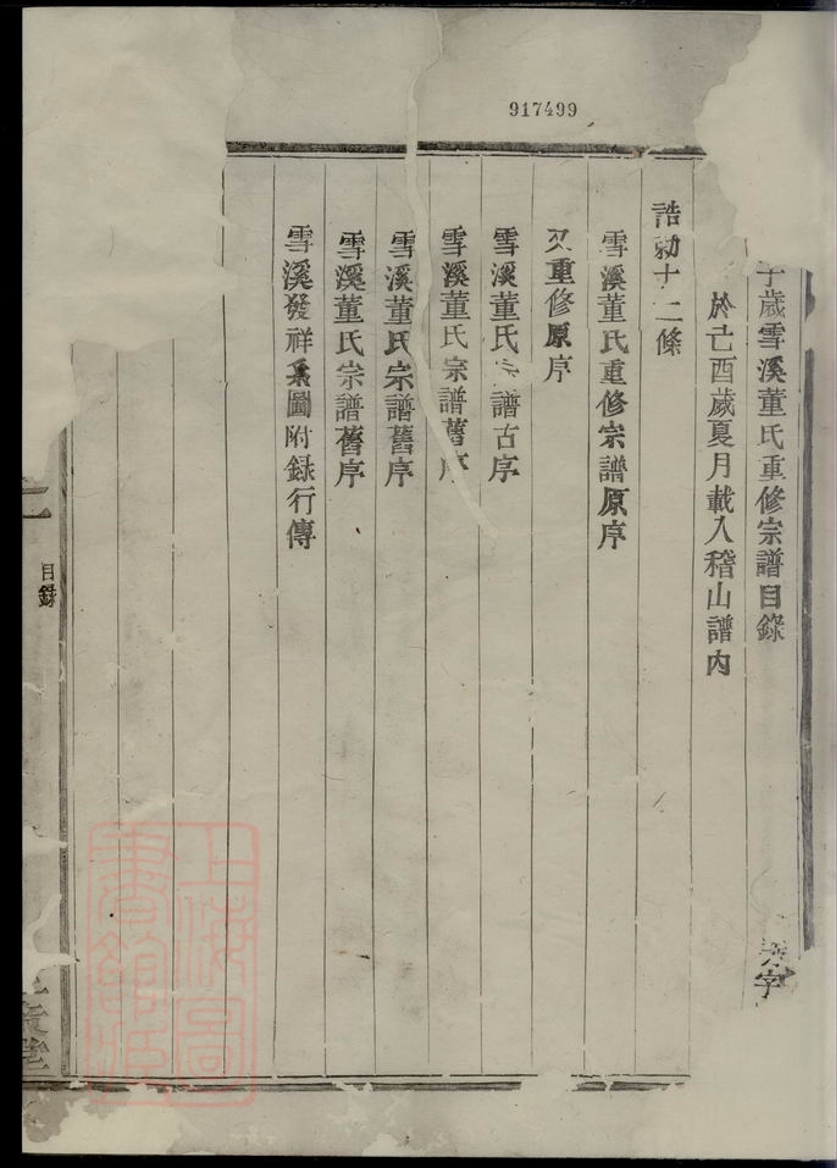 917499
子歲雪溪董氏重修宗譜目錄
字
於己酉歲夏月載入稽山譜內
誥勅十二條
雪溪董氏重修宗譜原序
又重修原序
雪溪董氏宗譜古序
雪溪董氏宗譜舊序
雪溪董氏宗譜舊序
雪溪董氏宗譜舊序
雪溪發祥系圖附録行傳
目録
堂
上海圖書館藏